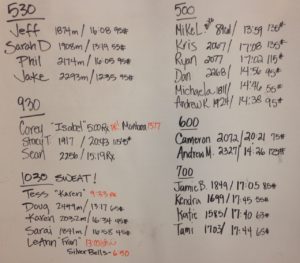 530
Jeff 1874m/16:08 95#
Sarah D 1908m/13:19 55#
Phil 2174m/16:05 95#
Jake 2293m/12:35 95#
930
Corey "Isabel" 5:00 Rx Montana 1377
Stacy T. 1917 / 20:43
Sean 2250/15:19 Rx
1030 SWEAT!
Tess "Karen" 9:33 Rx
Doug 2499m/13:17 65#
Karen 2032m/16:34 45#
Sarai 1841m/16:58 45#
LeAnn "Fran"
Silver Bells- 6:50
500
Mike L. / 13:59 135#
Kris 2067/17:08 135#
Ryan 2077/17:02 115#
Dan 2268/14:56 95#
Michaela 1811/14:46 55
Andrew K. 1924/14:38 95#
600
Cameron 2072/20:21 75#
Andrew M. 2327/14:26 125#
700
Jamie B. 1849/17:05 85#
Kendra 1699/17:45 55
Katie 1585/17:40 63#
Tami 1703/17:44 65#